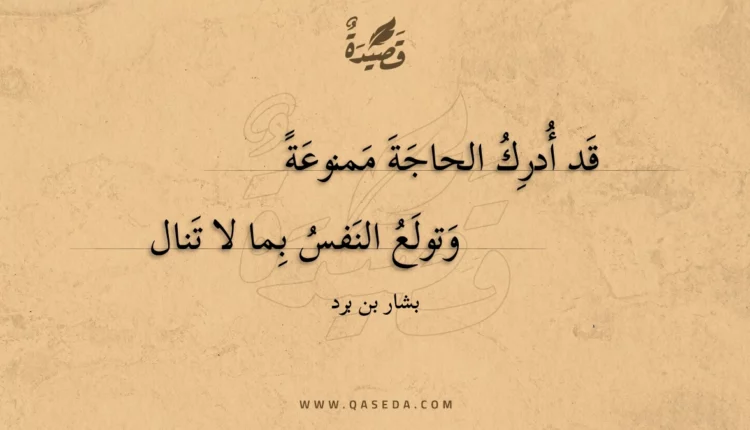 قَصِيْدَةٌ
قَد أُدرِكُ الحاجَةَ مَمنوعَةً
وَتولَعُ النَفسُ بِما لا تَنال
بشار بن برد
WWW.QASEDA.COM